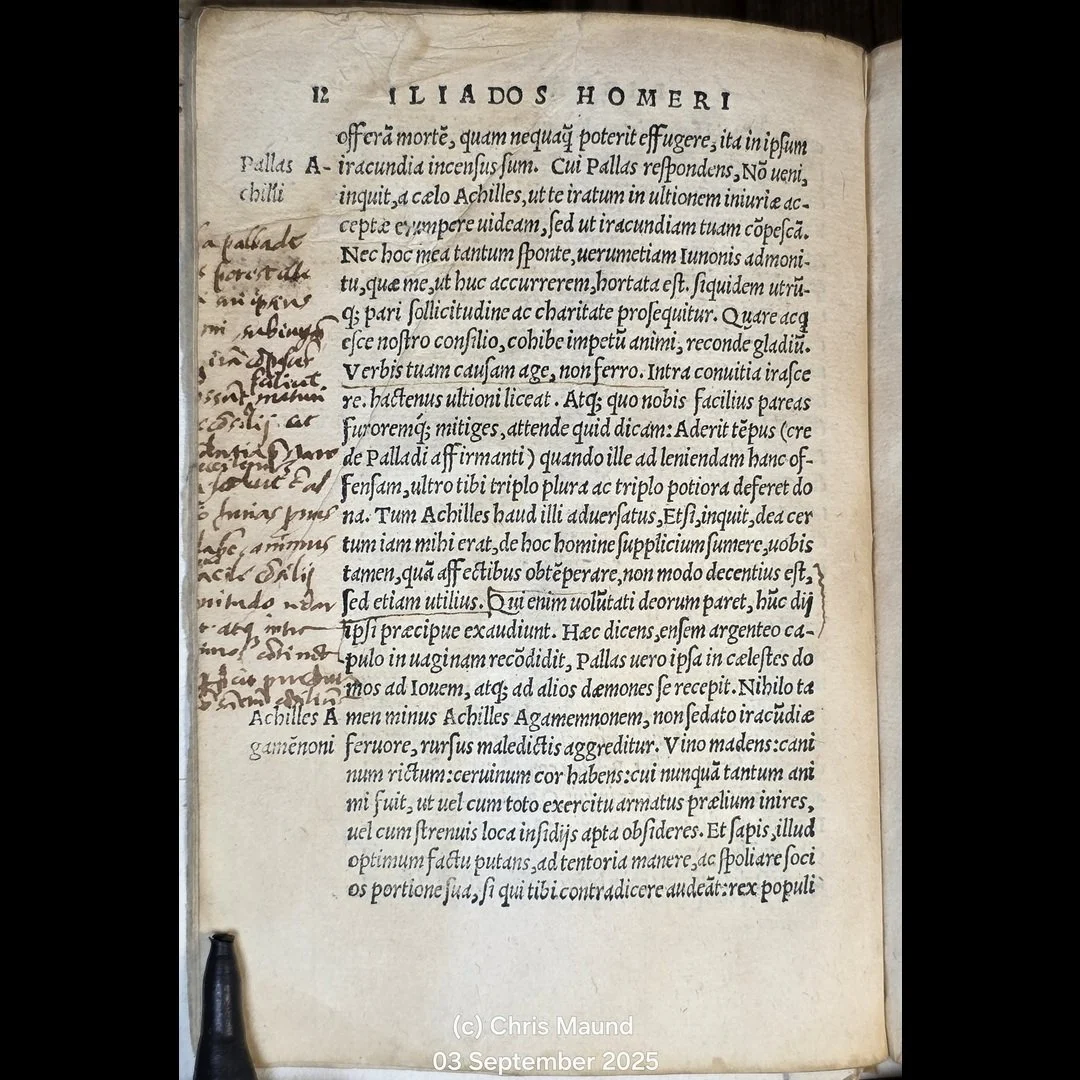 12 ILIADOS HOMERI
offerā mortē, quam nequaq̄ poterit effugere, ita in ipſum
Pallas A-
chilli
iracundia incenſus ſum. Cui Pallas reſpondens, Nō ueni,
inquit, a cælo Achilles, ut te iratum in ultionem iniuriæ ac-
ceptæ erumpere uideam, ſed ut iracundiam tuam cōpeſcā.
Nec hoc mea tantum ſponte, uerumetiam Iunonis admoni-
tu, quæ me, ut huc accurrerem, hortata eſt. ſiquidem utrū-
q; pari ſollicitudine ac charitate proſequitur. Quare acq
eſce noſtro conſilio, cohibe impetū animi, reconde gladiū.
Verbis tuam cauſam age, non ferro. Intra conuitia iraſce
re. hactenus ultioni liceat. Atq; quo nobis facilius pareas
furoremq́; mitiges, attende quid dicam: Aderit tēpus (cre
de Palladi affirmanti) quando ille ad leniendam hanc of-
fenſam, ultro tibi triplo plura ac triplo potiora deferet do
na. Tum Achilles haud illi aduerſatus, Etſi, inquit, dea cer
tum iam mihi erat, de hoc homine ſupplicium ſumere, uobis
tamen, quā affectibus obtēperare, non modo decentius eſt,
ſed etiam utilius. Qui enim uolūtati deorum paret, hūc dij
ipſi præcipue exaudiunt. Hæc dicens, enſem argenteo ca-
pulo in uaginam recōdidit, Pallas uero ipſa in cæleſtes do
mos ad Iouem, atq; ad alios dæmones ſe recepit. Nihilo ta
Achilles A
gamēnoni
men minus Achilles Agamemnonem, non ſedato iracūdiæ
feruore, rurſus maledictis aggreditur. Vino madens: cani
num rictum: ceruinum cor habens: cui nunquā tantum ani
mi fuit, ut uel cum toto exercitu armatus prælium inires,
uel cum ſtrenuis loca inſidijs apta obſideres. Et ſapis, illud
optimum factu putans, ad tentoria manere, ac ſpoliare ſoci
os portione ſua, ſi qui tibi contradicere audeāt: rex populi
a pallade
(c) Chris Maund
03 September 2025